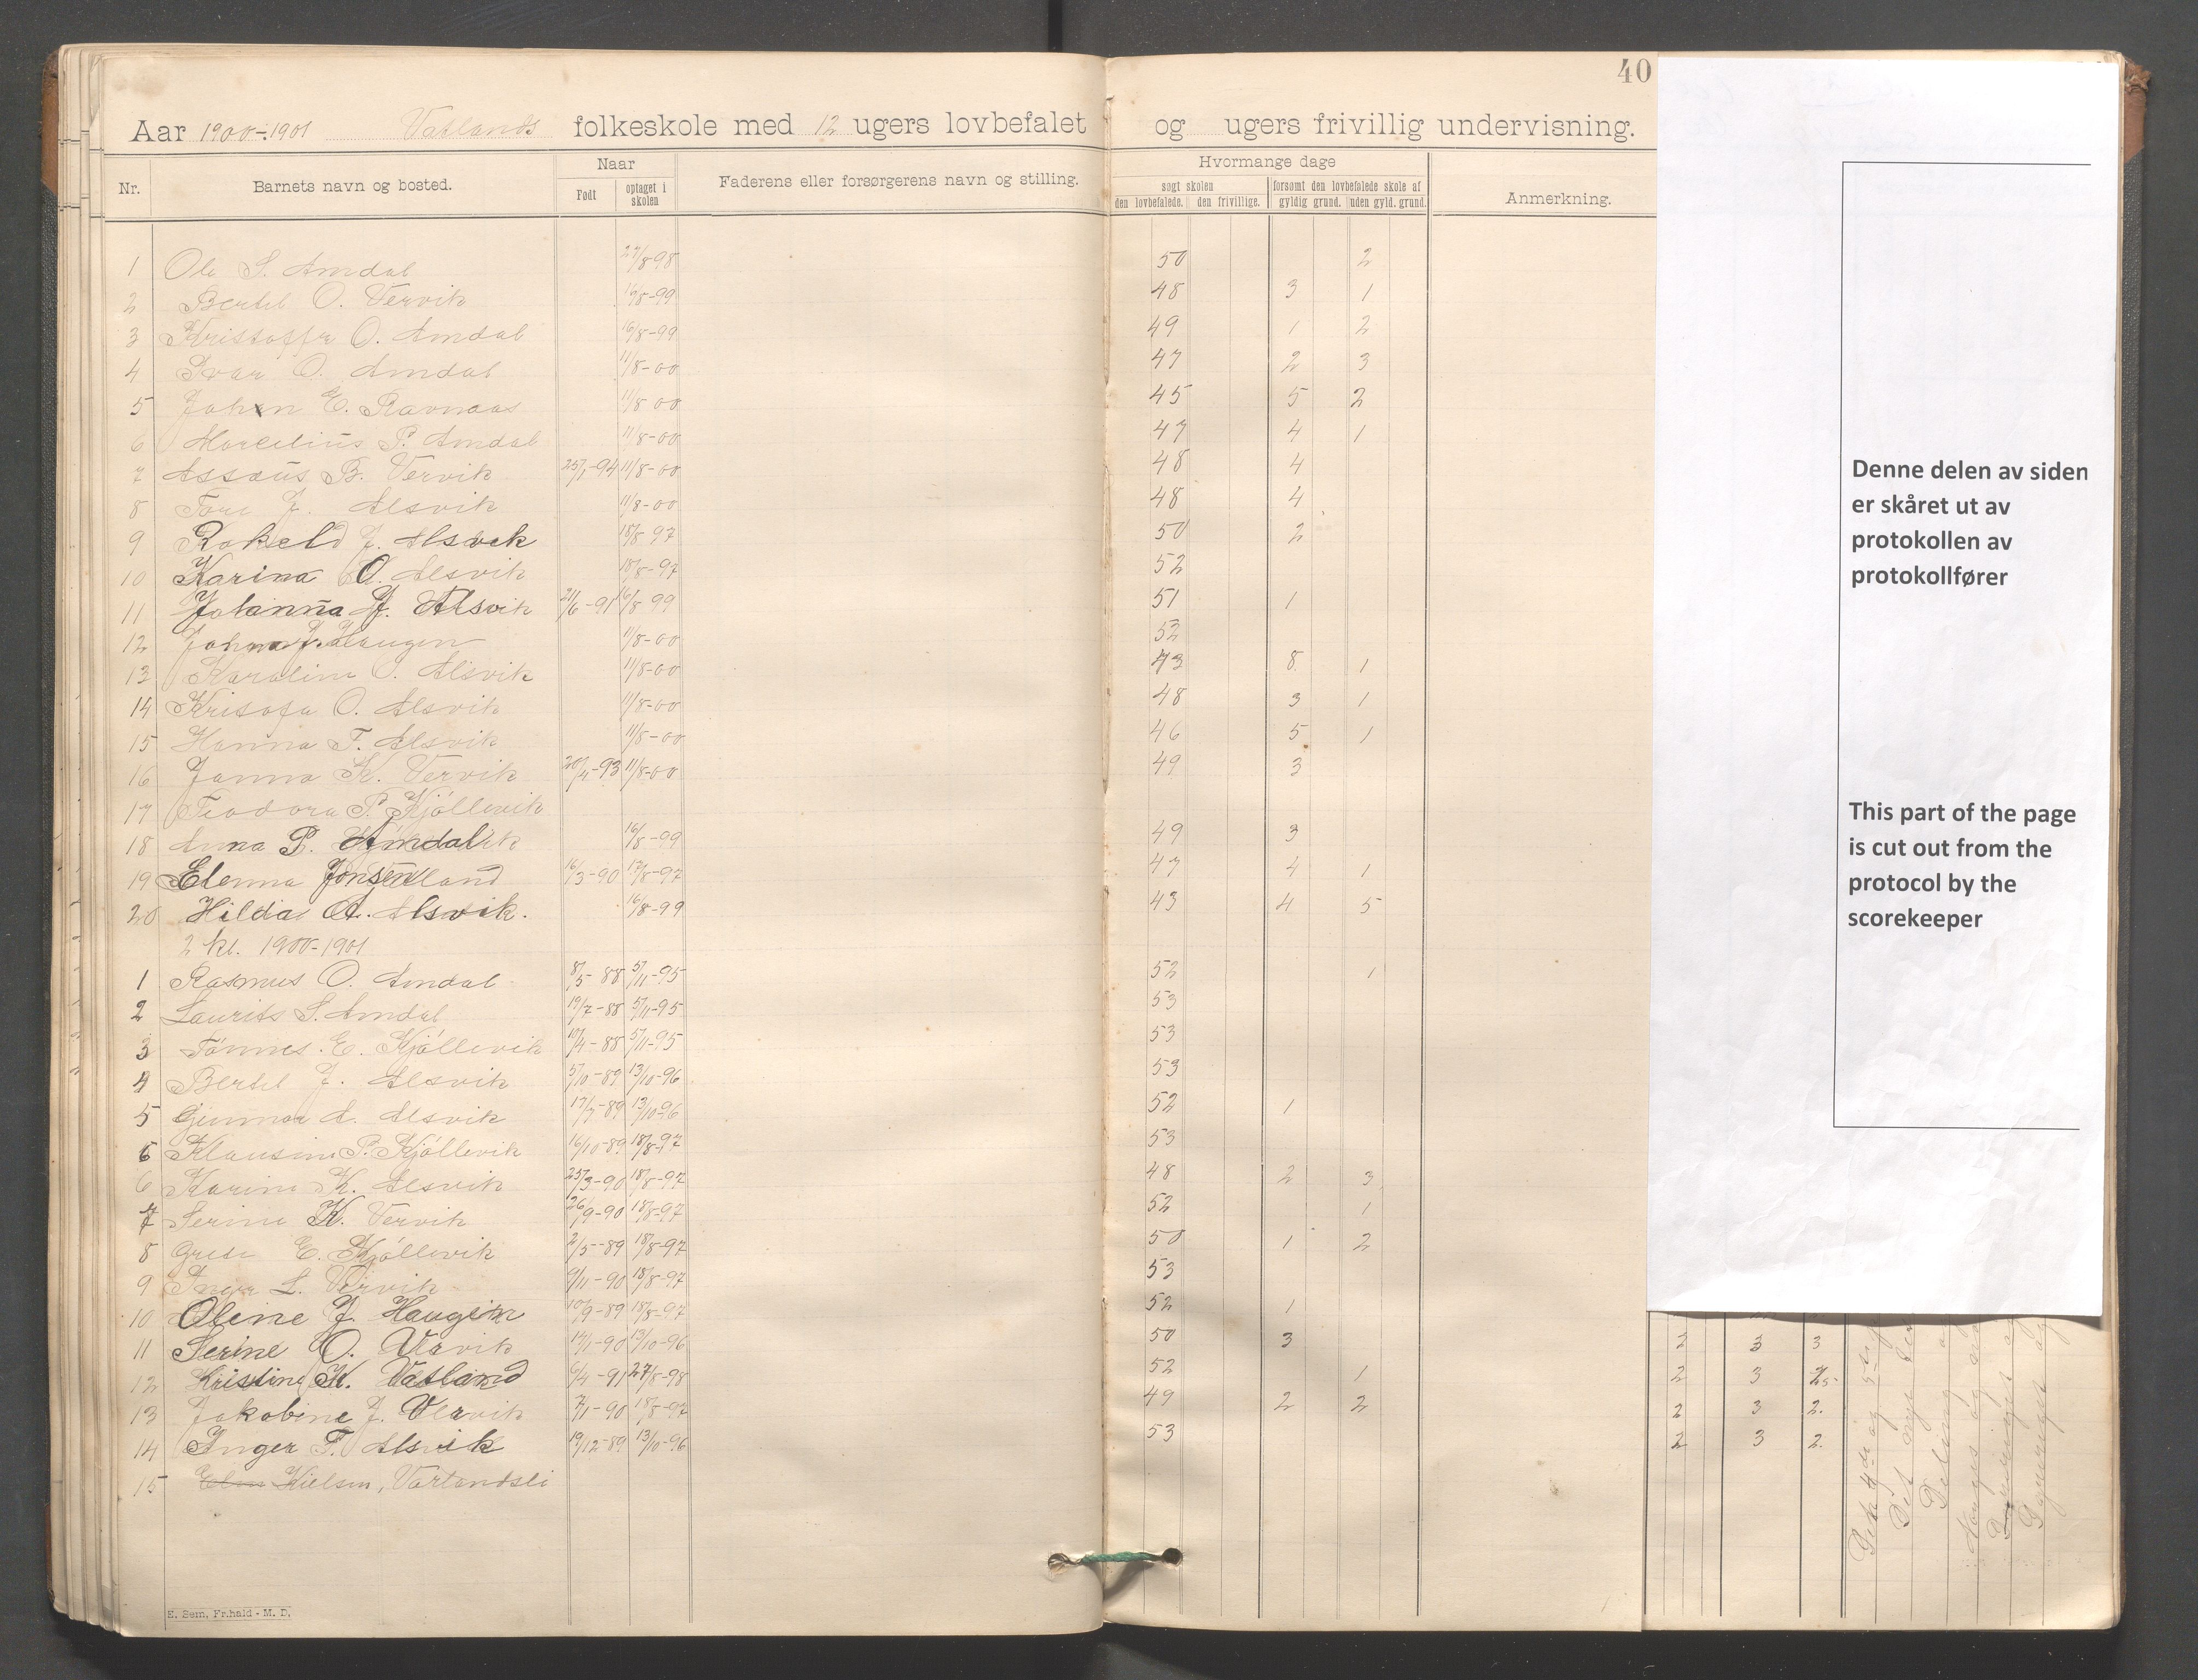 40
Aar 1900-1901 Vatlands folkeskole med 12 ugers lovbefalet og ugers frivillig undervisning.
Nr. Barnets navn og bosted. Naar Født optaget i skolen Faderens eller forsørgerens navn og stilling. Hvormange dage søgt skolen den lovbefalede. den frivillige. forsømt den lovbefalede skole af gyldig grund. uden gyld. grund. Anmerkning.
1 Ole S. Amdal 27/8-98 50 2
2 Bertel O. Vervik 16/8-99 48 3 1
3 Kristoffer O. Amdal 16/8-99 49 1 2
4 Ivar O. Amdal 11/8-00 47 2 3
5 Johan E. Ravnaas 11/8-00 45 5 2
6 Marcelius P. Amdal 11/8-00 47 4 1
7 Assaüs B. Vervik 25/1-94 11/8-00 48 4
8 Tore J. Alsvik 11/8-00 48 4
9 Rakeld J. Alsvik 18/8-97 50 2
10 Karina O. Alsvik 18/8-97 52
11 Johanna J. Alsvik 21/6-91 16/8 99 51 1
12 Johanna J. Haugen 11/8-00 52
13 Karoline O. Alsvik 11/8-00 43 8 1
14 Kristofa O. Alsvik 11/8-00 48 3 1
15 Hanna T. Alsvik 11/8-00 46 5 1
16 Janna K. Vervik 20/4-93 11/8-00 49 3
17 Teodora P. Kjöllevik
18 Anna P. Amdal 16/8-99 49 3
19 Elenna Jonsen 16/3-90 17/8-97 47 4 1
20 Hilda A. Alsvik. 16/8-99 43 4 5
2 kl. 1900-1901
1 Rasmus O. Amdal 8/5-88 5/11-95 52 1
2 Laurits S. Amdal 19/7-88 5/11-95 53
3 Tönnes E. Kjöllevik 19/4-88 5/11-95 53
4 Bertel J. Alsvik 5/10-89 13/10-96 53
5 Gunnar A. Alsvik 17/7-89 13/10-96 52 1
6 Klausine P. Kjöllevik 16/10-89 18/8-97 53
6 Karine K. Alsvik 25/3-90 18/8-97 48 2 3
7 Serine K. Vervik 26/9-90 18/8-97 52 1
8 Grete E. Kjöllevik 2/5-89 18/8-97 50 1 2
9 Inger L. Vervik 9/11-90 18/8-97 53
10 Oline J. Haugen 10/9-89 18/8-97 52 1
11 Serine O. Vervik 14/1-90 13/10-96 50 3
12 Kristine K. Vatland 6/4-91 27/8-98 52 1
13 Jakobine J. Vervik 7/1-90 18/8-97 49 2 2
14 Inger T. Alsvik 19/12-89 13/10-96 53
15 Elen Nielsen, Vartandsli
E. Sem, Fr.hald - M. D.
Denne delen av siden
er skåret ut av
protokollen av
protokollfører
This part of the page
is cut out from the
protocol by the
scorekeeper
2 3 3
2 3
2 3 2.
2 3 2.